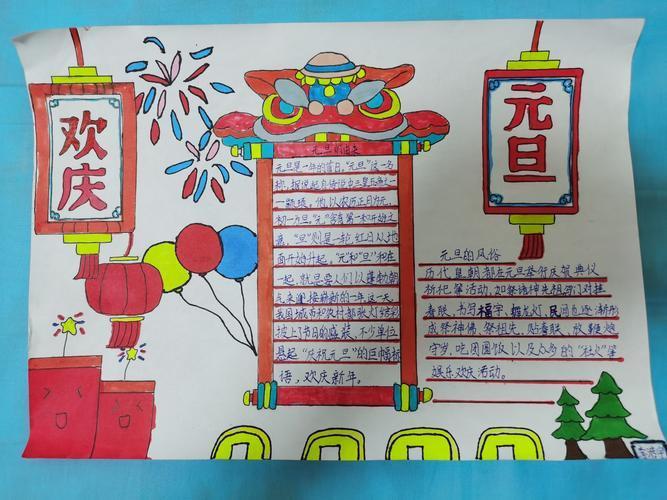 欢庆
元旦
元旦的由来
元旦是一年的首日,"元旦"这一名
称,据说起自传说中三皇五帝之一
一颛顼,他以农历正月为元,
初一为旦,"元"含有第一和开始之
意,"旦"则是一轮红日从地
面开始升起,"元"和"旦"和在
一起,就是要人们以蓬勃朝
气来迎接崭新的一年这一天
我国城市和农村都张灯结彩
披上节日的盛装,不少单位
悬起"庆祝元旦"的巨幅标
语,欢庆新年。
元旦的风俗
历代皇朝都在元旦举行庆贺典仪
祈祀等活动,如祭诸神先祖,门对挂
春联,书写福字、舞龙灯,民间也逐渐形
成祭神佛、祭祖先、贴春联、放鞭炮
守岁、吃团圆饭以及众多的"社火"等
娱乐欢庆活动。